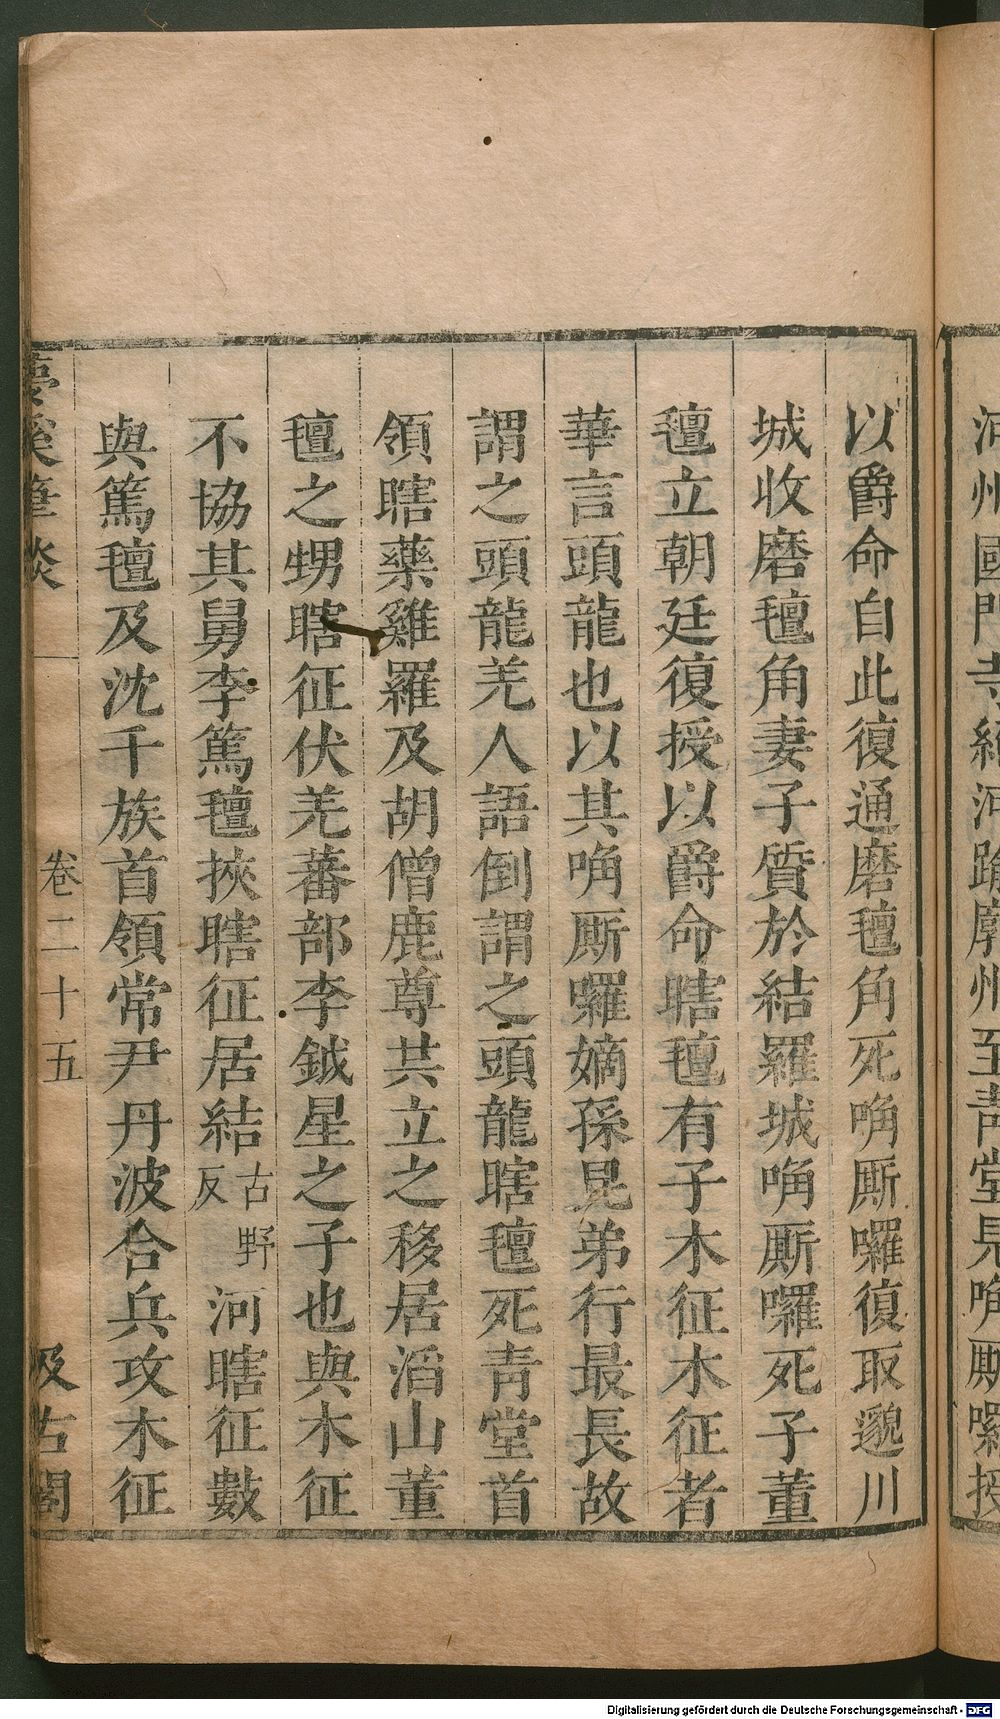 河州國門寺絶河踰廓州至青堂見唃厮囉授
以爵命自此復通磨氊角死唃厮囉復取邈川
城收磨氊角妻子質於結羅城唃厮囉死子董
氊立朝廷復授以爵命瞎氊有子木征木征者
華言頭龍也以其唃厮囉嫡孫晜弟行最長故
謂之頭龍羌人語倒謂之頭龍瞎氊死青堂首
領瞎藥雞羅及胡僧鹿尊共立之移居滔山董
氊之甥瞎征伏羌蕃部李鉞星之子也與木征
不協其舅李篤氊挾瞎征居結古野反河瞎征數
與篤氊及沈千族首領常尹丹波合兵攻木征
夢溪筆談 卷二十五 汲古閣
Digitalisierung gefördert durch die Deutsche Forschungsgemeinschaft - DFG